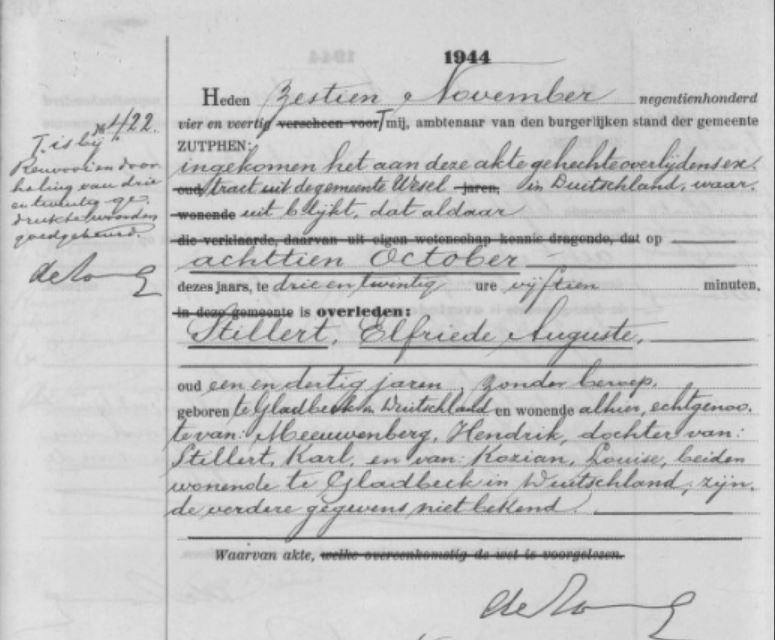 1944
Heden Zestien November negentienhonderd
vier en veertig verscheen voor T mij, ambtenaar van den burgerlijken stand der gemeente
ZUTPHEN:
ingekomen het aan deze akte gehechte overlijdensex.
oud, tract uit de gemeente Wesel jaren, in Duitschland, waar.
wonende uit blijkt, dat aldaar
die verklaarde, daarvan uit eigen wetenschap kennis dragende, dat op
achttien October
dezes jaars, te drie en twintig ure vijftien minuten,
in deze gemeente is overleden:
Stillert, Elfriede Auguste,
oud een en dertig jaren, zonder beroep,
geboren te Gladbeck in Duitschland en wonende alhier, echtgenoo.
te van: Meeuwenberg, Hendrik, dochter van:
Stillert, Karl, en van: Kozian, Louise, beiden
wonende te Gladbeck in Duitschland, zijn.
de verdere gegevens niet bekend
Waarvan akte, welke overeenkomstig de wet is voorgelezen.
No 422.
T. is bij
Renvooi en door
haling van drie
en twintig ge.
drukte woorden
goedgekeurd.